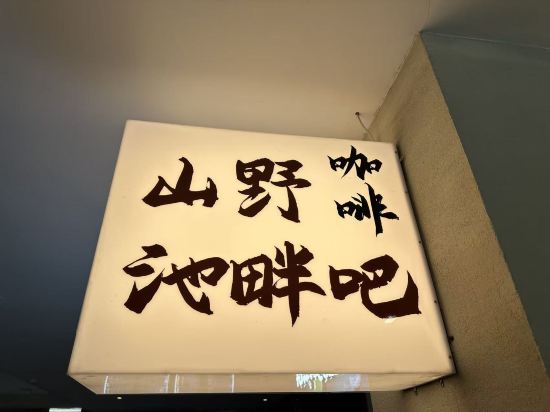 山野咖啡
池畔吧